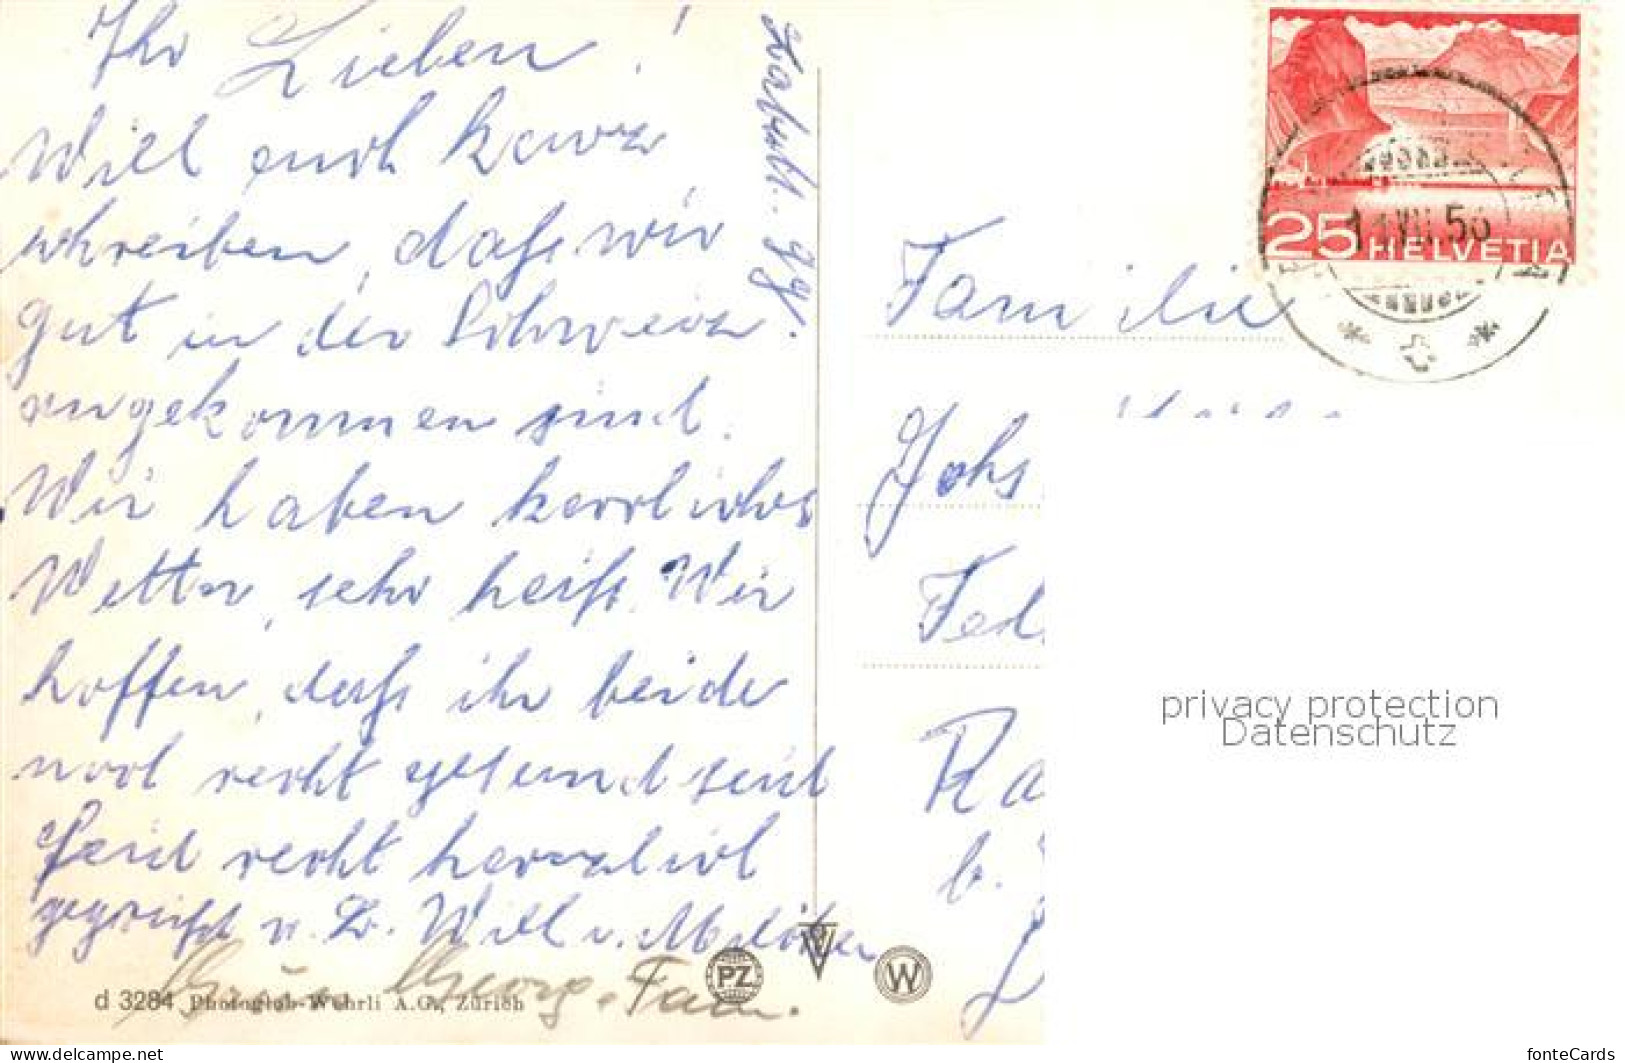 Ihr Lieben!
Will euch kurz
schreiben, daß wir
gut in der Schweiz
angekommen sind.
Wir haben herrliches
Wetter, sehr heiß. Wir
hoffen, daß ihr beide
noch recht gesund seid
Seid recht herzlich
gegrüßt v. Br. Will u.
Georg. Fam.
d 3284 Photoglob-Wehrli A.G., Zürich
PZ
W
25 HELVETIA
VII.56
Familie
Johs
Fel
Ra
b.
privacy protection
Datenschutz
www.delcampe.net
fonteCards